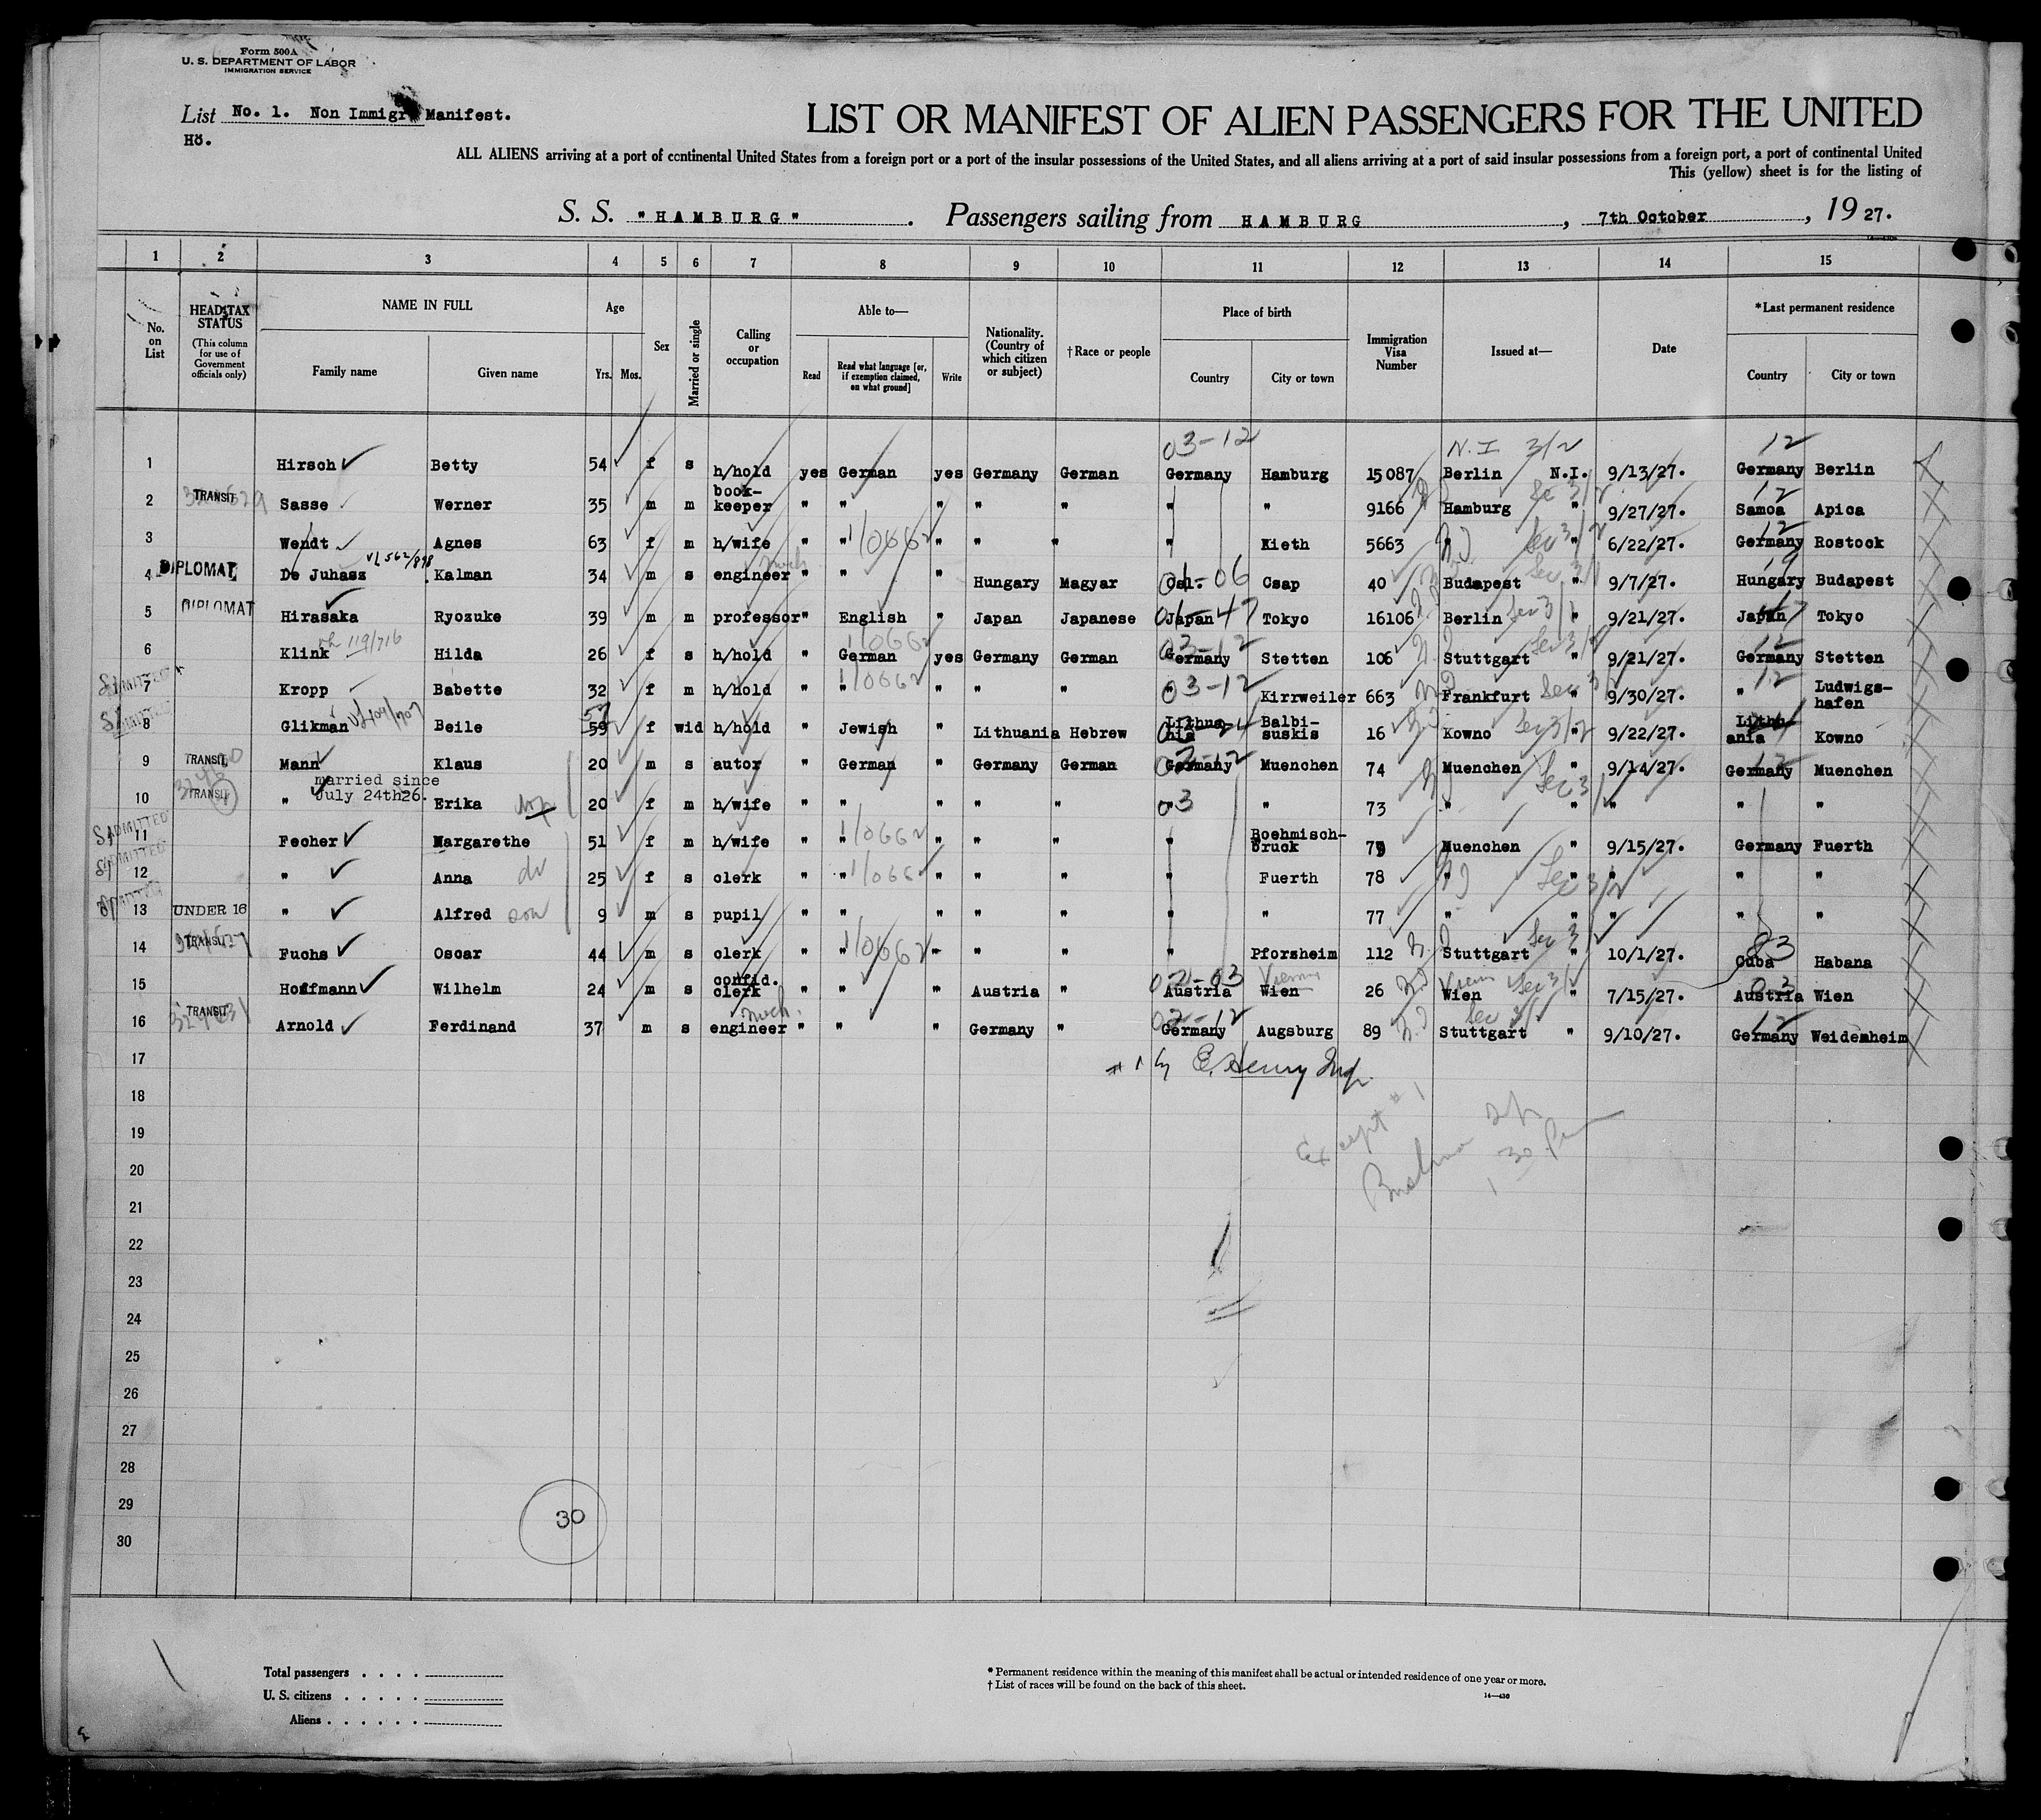 Form 500A
U. S. DEPARTMENT OF LABOR
IMMIGRATION SERVICE
List No. 1. Non Immigr Manifest.
Hö.
LIST OR MANIFEST OF ALIEN PASSENGERS FOR THE UNITED
ALL ALIENS arriving at a port of continental United States from a foreign port or a port of the insular possessions of the United States, and all aliens arriving at a port of said insular possessions from a foreign port, a port of continental United
This (yellow) sheet is for the listing of
S. S. "HAMBURG" . Passengers sailing from HAMBURG , 7th October , 19 27.
1 2 3 4 5 6 7 8 9 10 11 12 13 14 15
No. on List
HEAD-TAX STATUS (This column for use of Government officials only)
NAME IN FULL Family name Given name
Age Yrs. Mos.
Sex
Married or single
Calling or occupation
Able to— Read Read what language [or, if exemption claimed, on what ground] Write
Nationality. (Country of which citizen or subject)
† Race or people
Place of birth Country City or town
Immigration Visa Number
Issued at—
Date
*Last permanent residence Country City or town
03-12 N.I 3/2 12
1 Hirsch Betty 54 f s h/hold yes German yes Germany German Germany Hamburg 15087 Berlin N.I. 9/13/27. Germany Berlin
2 TRANSIT Sasse Werner 35 m m book-keeper " " " " " " " 9166 Hamburg " 9/27/27. Samoa Apica
3 Wendt Agnes 63 f m h/wife " " 1/0662 " " " " Kieth 5663 " " 6/22/27. Germany Rostock
4 DIPLOMAT De Juhasz VL562/898 Kalman 34 m s engineer " " " Hungary Magyar Csl. 06 Csap 40 Budapest " 9/7/27. Hungary Budapest
5 DIPLOMAT Hirasaka Ryozuke 39 m m professor " English " Japan Japanese Japan 47 Tokyo 16106 Berlin " 9/21/27. Japan Tokyo
6 Klink 119/716 Hilda 26 f s h/hold " German 1/0662 yes Germany German Germany 03-12 Stetten 106 Stuttgart " 9/21/27. Germany Stetten
7 Kropp Babette 32 f m h/hold " " 1/0662 " " " " 03-12 Kirrweiler 663 Frankfurt " 9/30/27. " Ludwigs-hafen
8 Glikman Beile 59 f wid h/hold " Jewish " Lithuania Hebrew Lithua-nia Balbi-suskis 16 Kowno " 9/22/27. Lithu-ania Kowno
9 TRANSIT Mann Klaus 20 m s autor " German " Germany German Germany Muenchen 74 Muenchen " 9/14/27. Germany Muenchen
married since July 24th26.
10 TRANSIT " Erika 20 f m h/wife " " " " " " 03 " 73 " " " " "
11 ADMITTED Fecher Margarethe 51 f m h/wife " " 1/0662 " " " " Boehmisch-bruck 79 Muenchen " 9/15/27. Germany Fuerth
12 ADMITTED " Anna 25 f s clerk " " 1/0662 " " " " Fuerth 78 " " " " "
13 UNDER 16 " Alfred son 9 m s pupil " " " " " " " 77 " " " " "
14 TRANSIT Fuchs Oscar 44 m s clerk " " 1/0662 " " " " Pforzheim 112 Stuttgart " 10/1/27. Cuba Habana
15 Hoffmann Wilhelm 24 m s confid. clerk " " " Austria " Austria Wien 26 Wien " 7/15/27. Austria Wien
16 TRANSIT Arnold Ferdinand 37 m s mech. engineer " " " Germany " Germany Augsburg 89 Stuttgart " 9/10/27. Germany Weidenheim
17 E. Henry Insp.
18
Except #1
19
1 30 Pm
20
21
22
23
24
25
26
27
28
29
30
30
Total passengers . . . .
U. S. citizens . . . . .
Aliens . . . . . .
* Permanent residence within the meaning of this manifest shall be actual or intended residence of one year or more.
† List of races will be found on the back of this sheet.
14—430